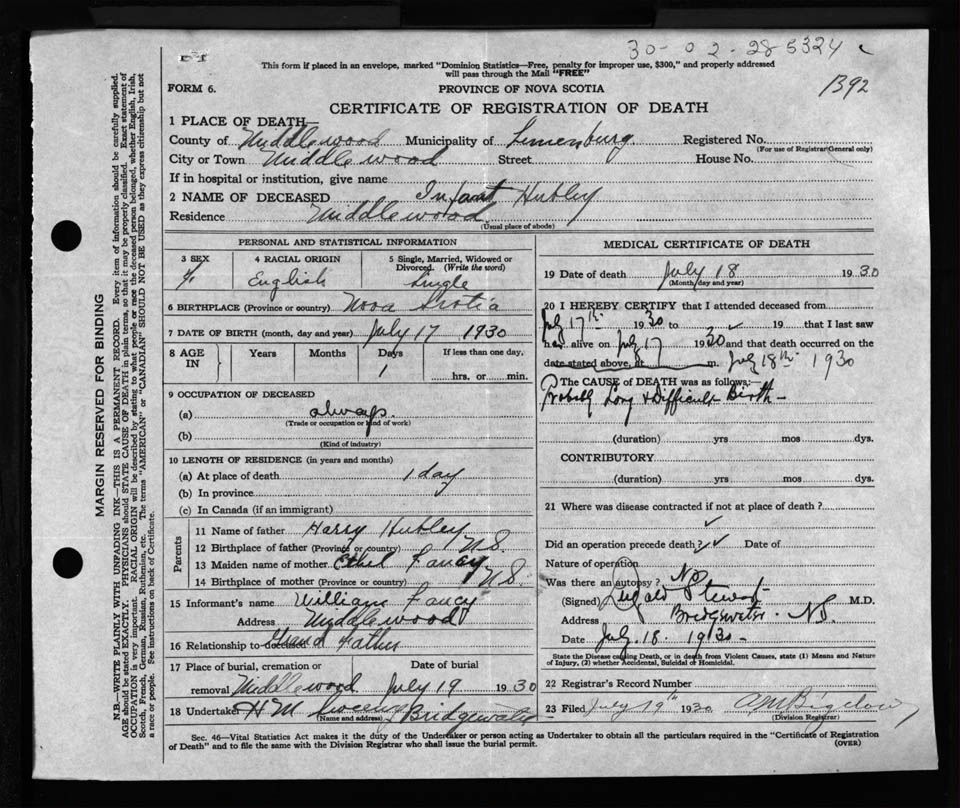 30-02-285324
1392
This form if placed in an envelope, marked "Dominion Statistics—Free, penalty for improper use, $300," and properly addressed
will pass through the Mail "FREE"
FORM 6. PROVINCE OF NOVA SCOTIA
CERTIFICATE OF REGISTRATION OF DEATH
1 PLACE OF DEATH—
County of Middlewood Municipality of Lunenburg Registered No.
(For use of Registrar General only)
City or Town Middlewood Street House No.
If in hospital or institution, give name
2 NAME OF DECEASED Infant Hubley
Residence Middlewood
(Usual place of abode)
PERSONAL AND STATISTICAL INFORMATION
3 SEX 4 RACIAL ORIGIN 5 Single, Married, Widowed or
Divorced. (Write the word)
English Single
6 BIRTHPLACE (Province or country) Nova Scotia
7 DATE OF BIRTH (month, day and year) July 17 1930
8 AGE IN Years Months Days If less than one day,
1 hrs. or min.
9 OCCUPATION OF DECEASED
(a) always.
(Trade or occupation or kind of work)
(b)
(Kind of industry)
10 LENGTH OF RESIDENCE (in years and months)
(a) At place of death 1 day
(b) In province
(c) In Canada (if an immigrant)
Parents
11 Name of father Harry Hubley
12 Birthplace of father (Province or country) N.S.
13 Maiden name of mother Ethel Fancy
14 Birthplace of mother (Province or country) N.S.
15 Informant's name William Fancy
Address Middlewood
16 Relationship to deceased Grand Father
17 Place of burial, cremation or Date of burial
removal Middlewood July 19 1930
18 Undertaker H M Bridgewater
(Name and address)
MEDICAL CERTIFICATE OF DEATH
19 Date of death July 18 1930
(Month, day and year)
20 I HEREBY CERTIFY that I attended deceased from
July 17th 1930 to 19 that I last saw
h alive on July 17 1930 and that death occurred on the
date stated above, at m. July 18th 1930
The CAUSE of DEATH was as follows:—
Probably Long & Difficult Birth -
(duration) yrs mos dys.
CONTRIBUTORY
(duration) yrs mos dys.
21 Where was disease contracted if not at place of death?
Did an operation precede death? Date of
Nature of operation
Was there an autopsy? No
(Signed) Dugald Stewart M.D.
Address Bridgewater - N.S.
Date July 18 1930
State the Disease causing Death, or in death from Violent Causes, state (1) Means and Nature
of Injury, (2) whether Accidental, Suicidal or Homicidal.
22 Registrar's Record Number
23 Filed July 19th 1930 Bigelow
(Division Registrar)
Sec. 46—Vital Statistics Act makes it the duty of the Undertaker or person acting as Undertaker to obtain all the particulars required in the "Certificate of Registration
of Death" and to file the same with the Division Registrar who shall issue the burial permit. (OVER)
MARGIN RESERVED FOR BINDING
N.B.—WRITE PLAINLY WITH UNFADING INK—THIS IS A PERMANENT RECORD. Every item of information should be carefully supplied.
AGE should be stated EXACTLY. PHYSICIANS should STATE CAUSE OF DEATH in plain terms, so that it may be properly classified. Exact statement of
OCCUPATION is very important. RACIAL ORIGIN will be described by stating to what people or race the deceased person belonged, whether English, Irish,
Scotch, French, German, Russian, Ruthenian, etc. The terms "AMERICAN" or "CANADIAN" SHOULD NOT BE USED as they express citizenship but not
a race or people. See instructions on back of Certificate.